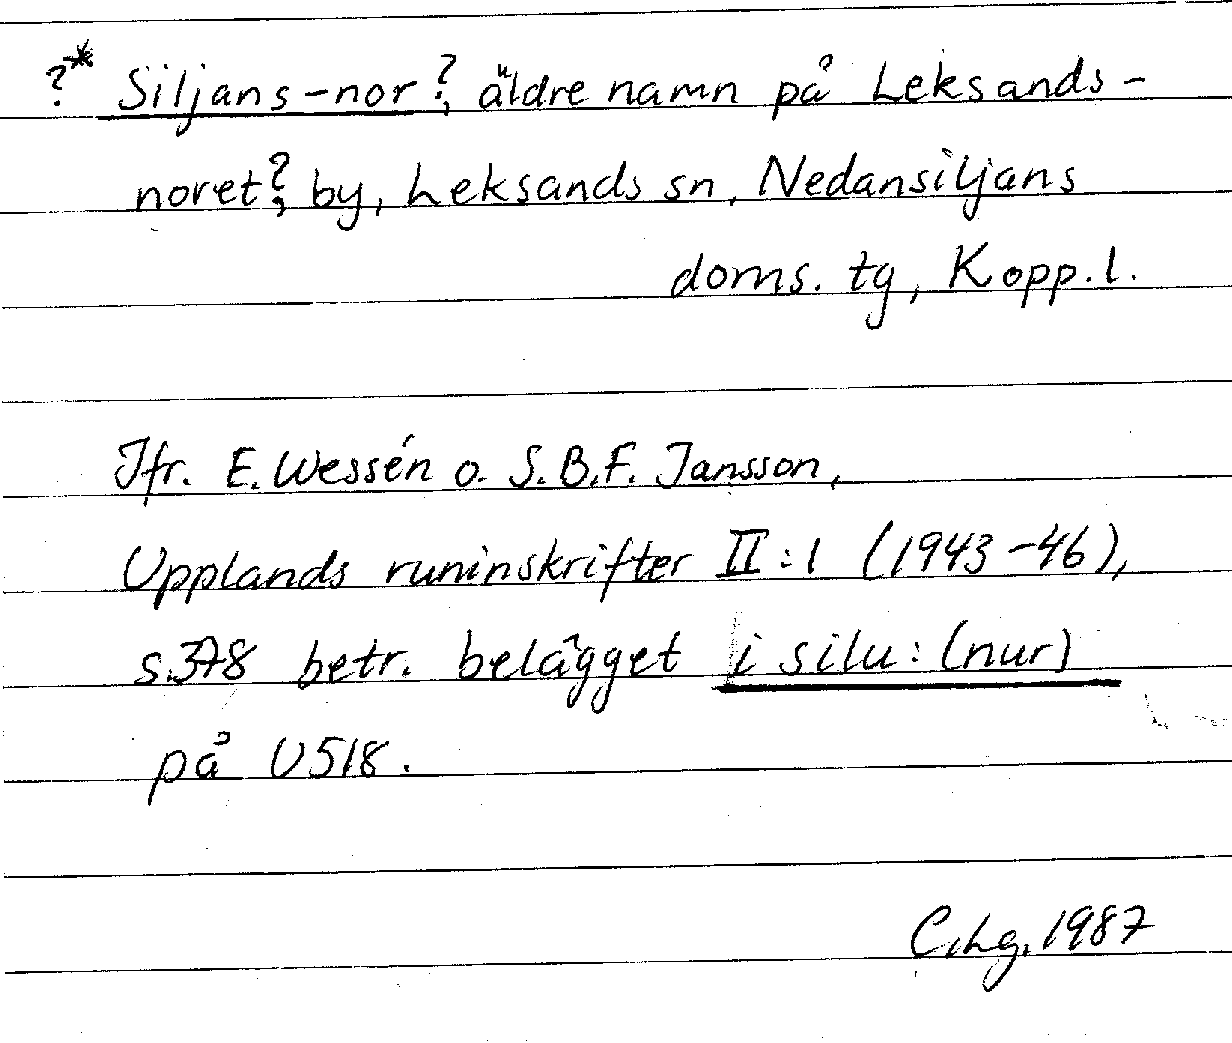 ?* Siljans-nor?, äldre namn på Leksands-
noret?, by, Leksands sn, Nedansiljans
doms. tg, Kopp. l.
Jfr. E. Wessén o. S.B.F. Jansson,
Upplands runinskrifter II:1 (1943-46),
s.378 betr. belägget i silu:(nur)
på U518.
C.Lg. 1987